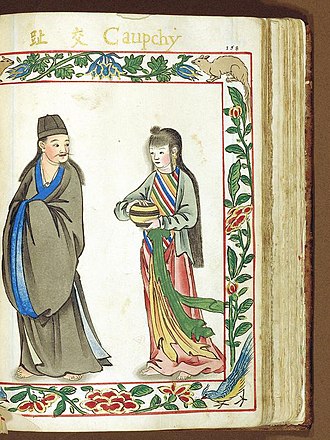 趾 交 Caupchy̆
158